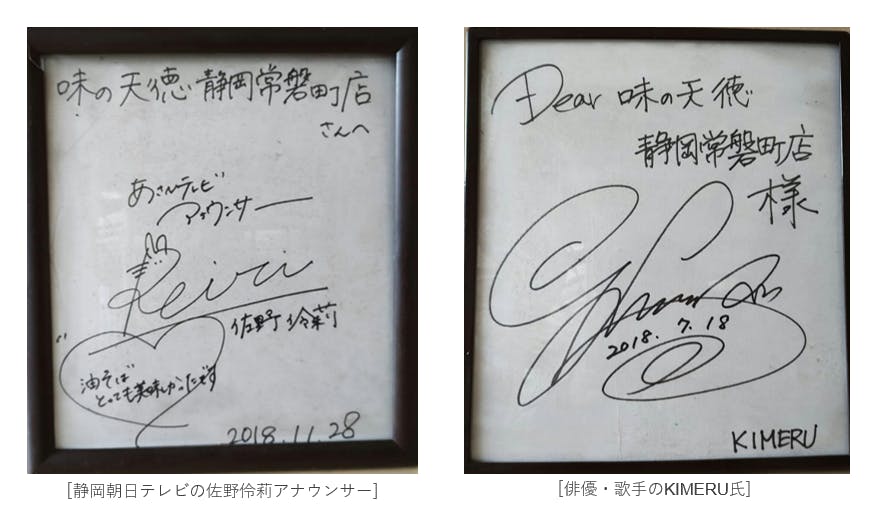 味の天徳 静岡常磐町店
さんへ
あさひテレビ
アナウンサー
Reiri
佐野 伶莉
油そば
とっても美味しかったです
2018.11.28
[静岡朝日テレビの佐野伶莉アナウンサー]
Dear 味の天徳
静岡常磐町店
様
2018. 7. 18
KIMERU
[俳優・歌手のKIMERU氏]